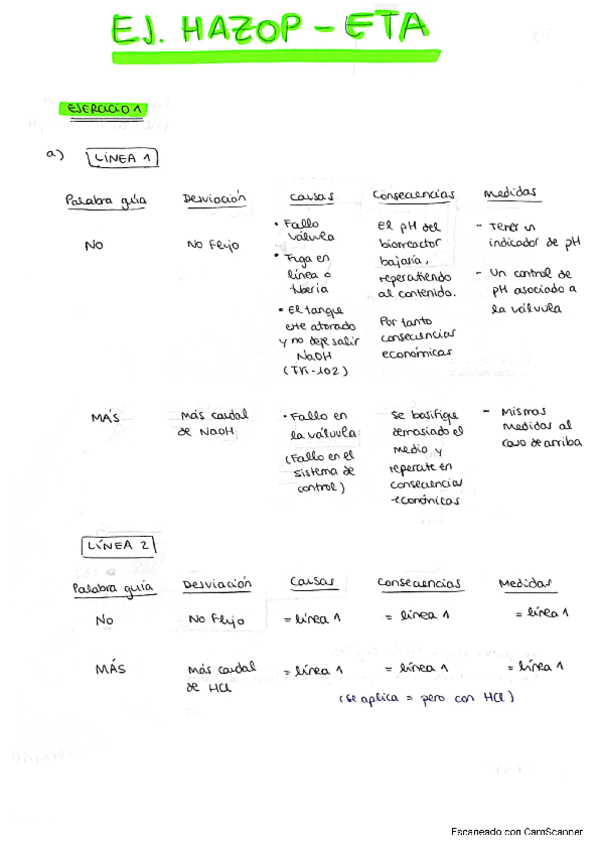 EJ. HAZOP - ETA
EJERCICIO 1
a) LÍNEA 1
Palabra guía Desviación Causas Consecuencias Medidas
No
No Flujo
• Fallo
válvula
• Fuga en
línea o
tubería
• El tanque
este atorado
y no deje salir
NaOH
(TK-102)
El pH del
biorreactor
bajaría,
repercutiendo
al contenido.
Por tanto
consecuencias
económicas
- Tener un
indicador de pH
- Un control de
pH asociado a
la válvula
MÁS
Más caudal
de NaOH
• Fallo en
la válvula
(Fallo en el
sistema de
control)
Se basifique
demasiado el
medio y
repercute en
consecuencias
económicas
- Mismas
medidas al
caso de arriba
LÍNEA 2
Palabra guía Desviación Causas Consecuencias Medidas
No No Flujo = línea 1 = línea 1 = línea 1
MÁS Más caudal = línea 1 = línea 1 = línea 1
de HCl
(se aplica = pero con HCl)
Escaneado con CamScanner